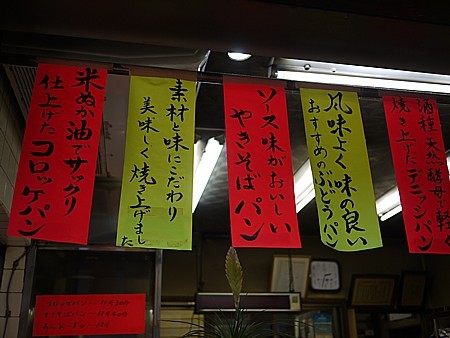 米ぬか油でサックリ
仕上げた コロッケパン
素材と味にこだわり
美味しく焼き上げました
ソース味がおいしい
やきそばパン
風味よく味の良い
おすすめのぶどうパン
酒種 天然酵母で軽く
焼き上げたデニッシュパン